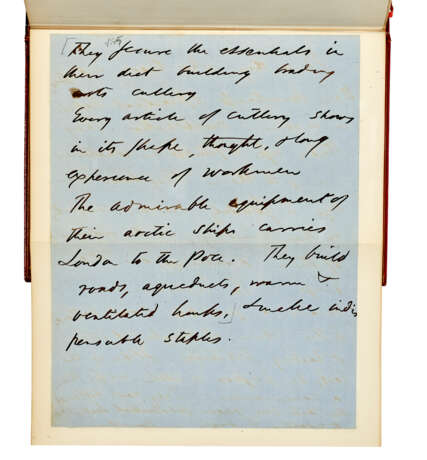 [They secure the essentials in
their diet building trading
arts cutlery
Every article of cutlery shows
in its shape, thought, & long
experience of workmen
The admirable equipment of
their arctic ships carries
London to the Pole. They build
roads, aqueducts, warm &
ventilated houses,] & make indis
pensable staples.